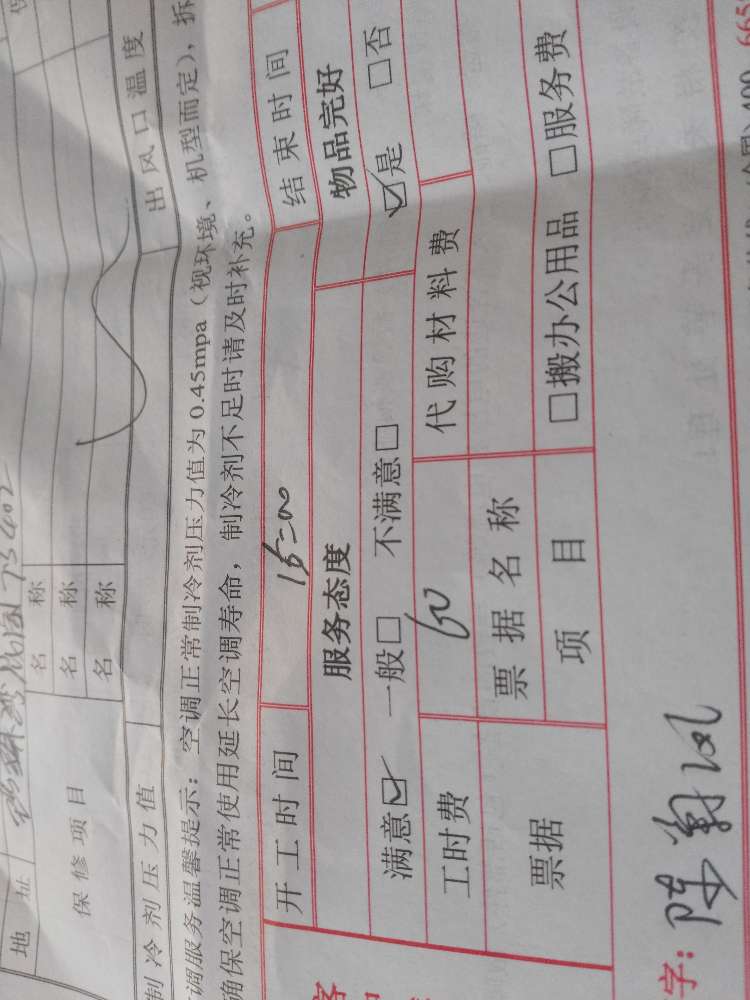 地 址 7345402
保修项目 名 称
名 称
名 称
制冷剂压力值 出风口温度
调服务温馨提示：空调正常制冷剂压力值为 0.45mpa（视环境、机型而定），拆
确保空调正常使用延长空调寿命，制冷剂不足时请及时补充。
开工时间 15:00 结束时间
服务态度 物品完好
满意☑ 一般□ 不满意□ ☑是 □否
工时费 60 代购材料费
票据 票据名称
项 目 □搬办公用品 □服务费
字：陈菊凤